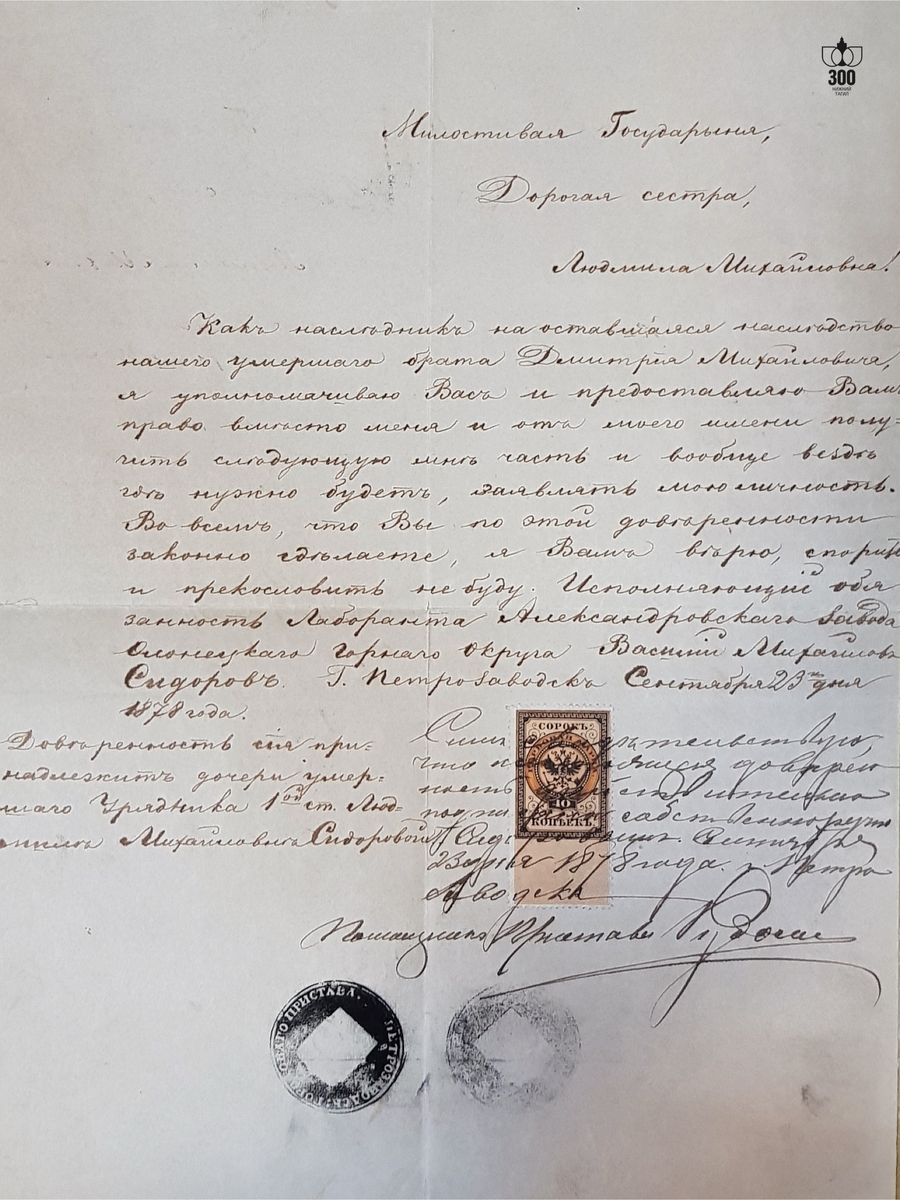 300
НИЖНИЙ
ТАГИЛ
Милостивая Государыня,
Дорогая сестра,
Людмила Михайловна!
Какъ наслѣдникъ на оставшаяся наслѣдство
нашего умершаго брата Дмитрія Михайловича,
я уполномачиваю Васъ и предоставляю Вамъ
право вмѣсто меня и отъ моего имени полу-
чить слѣдующую мнѣ часть и вообще вездѣ
гдѣ нужно будетъ, заявлять мою личность.
Во всемъ, что Вы по этой довѣренности
законно сдѣлаете, я Вамъ вѣрю, спорить
и прекословить не буду. Исполняющій обя
занность Лаборанта Александровскаго завода
Олонецкаго горнаго округа Василій Михайловъ
Сидоровъ. Г. Петрозаводскъ Сентября 23го дня
1878 года.
Довѣренность сія при-
надлежитъ дочери умер-
шаго Урядника 1ой ст. Люд-
милѣ Михайловнѣ Сидоровой
что довѣрен
ность
собственноручно
23 дня 1878 года. г. Петро
заводскъ
Помощникъ Пристава
СОРОКЪ
40
КОПѢЕКЪ
ПЕТРОЗАВОДСК. ГОРОДСКАГО ПРИСТАВА